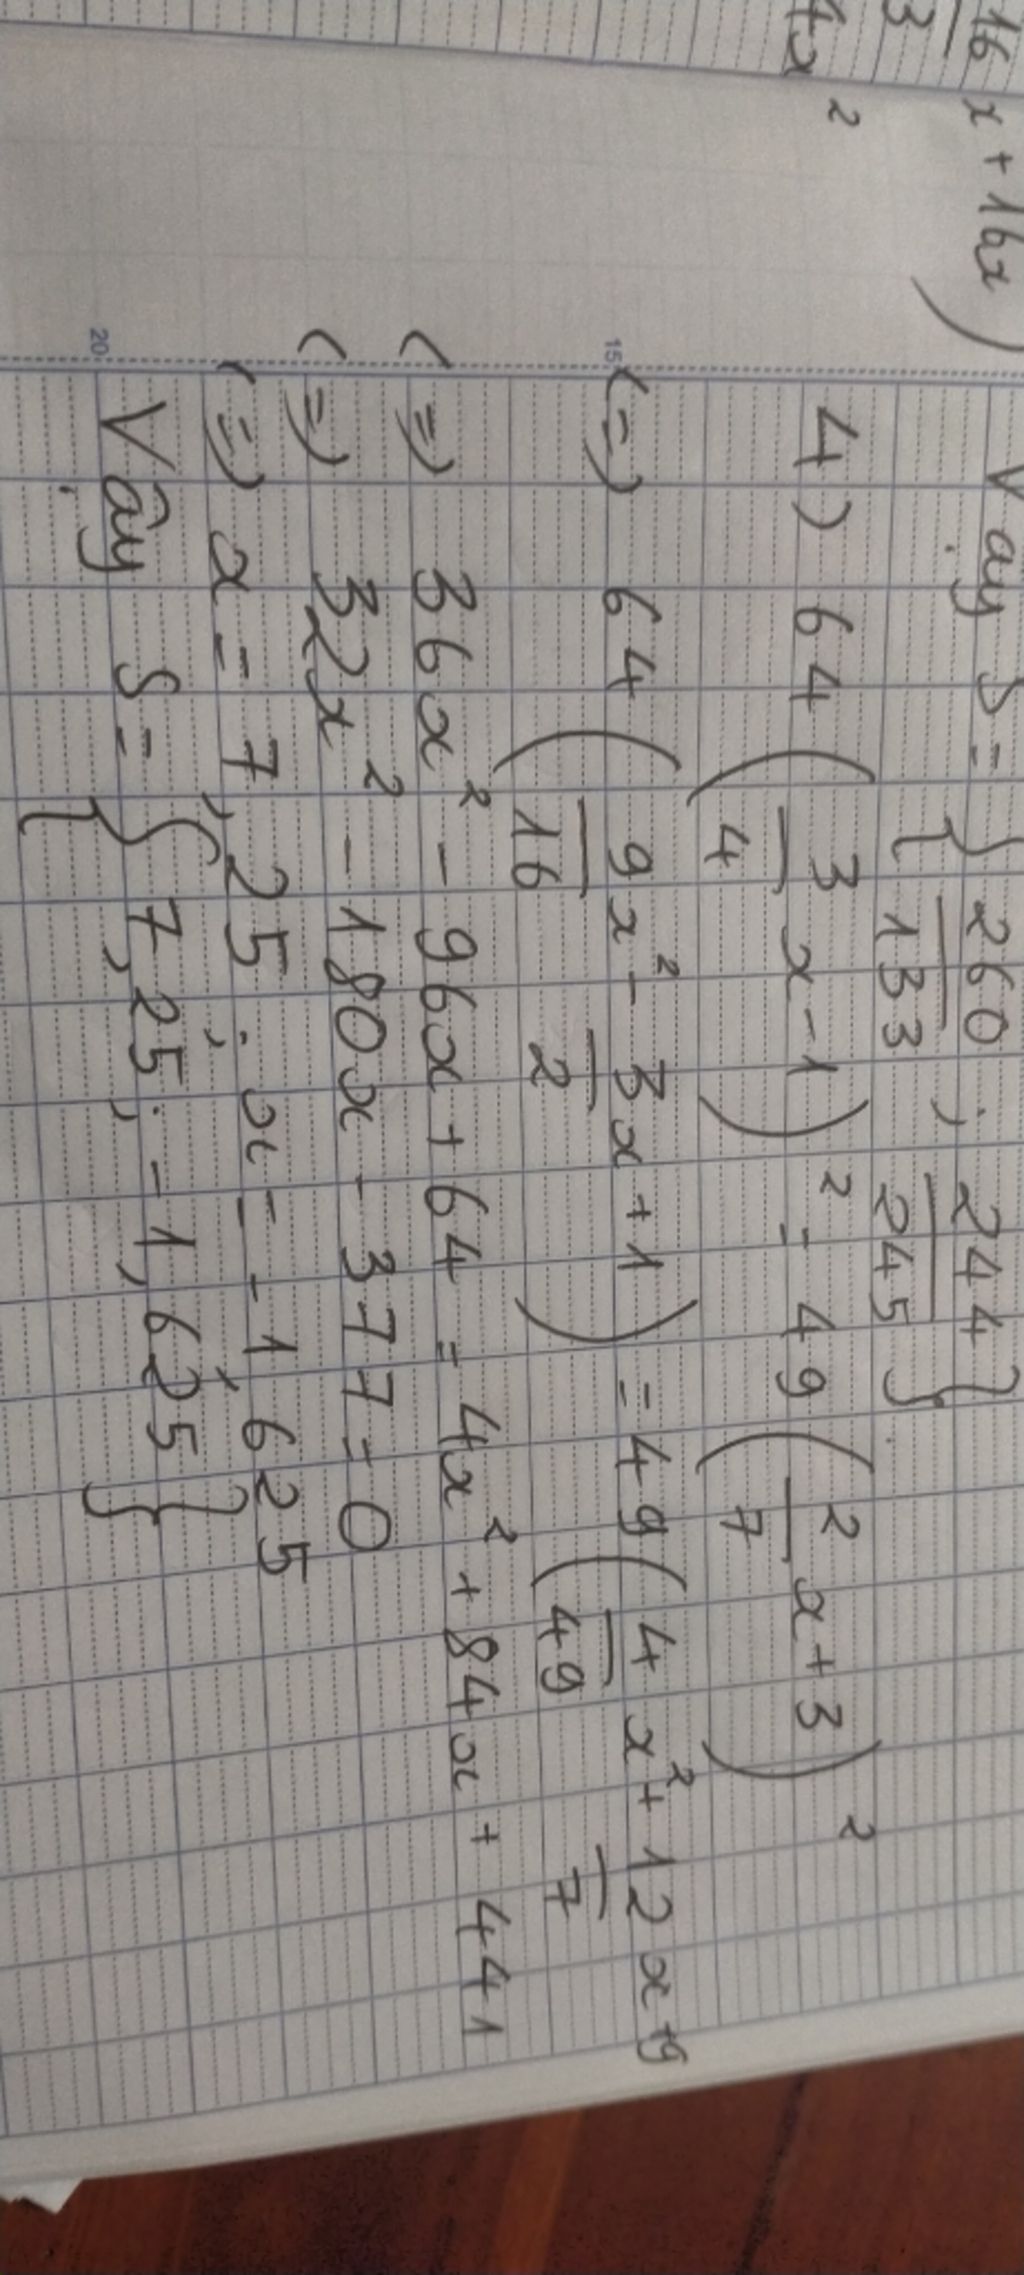 16/3 x + 16x)
4x²
Vậy S = {260/133 ; 244/245}
4) 64 (3/4 x - 1)² = 49 (2/7 x + 3)²
15
(=) 64 (9/16 x² - 3/2 x + 1) = 49 (4/49 x² + 12/7 x + 9
(=) 36x² - 96x + 64 = 4x² + 84x + 441
(=) 32x² - 180x - 377 = 0
(=) x = 7,25 ; x = -1,625
20
Vậy S = {7,25 ; -1,625}